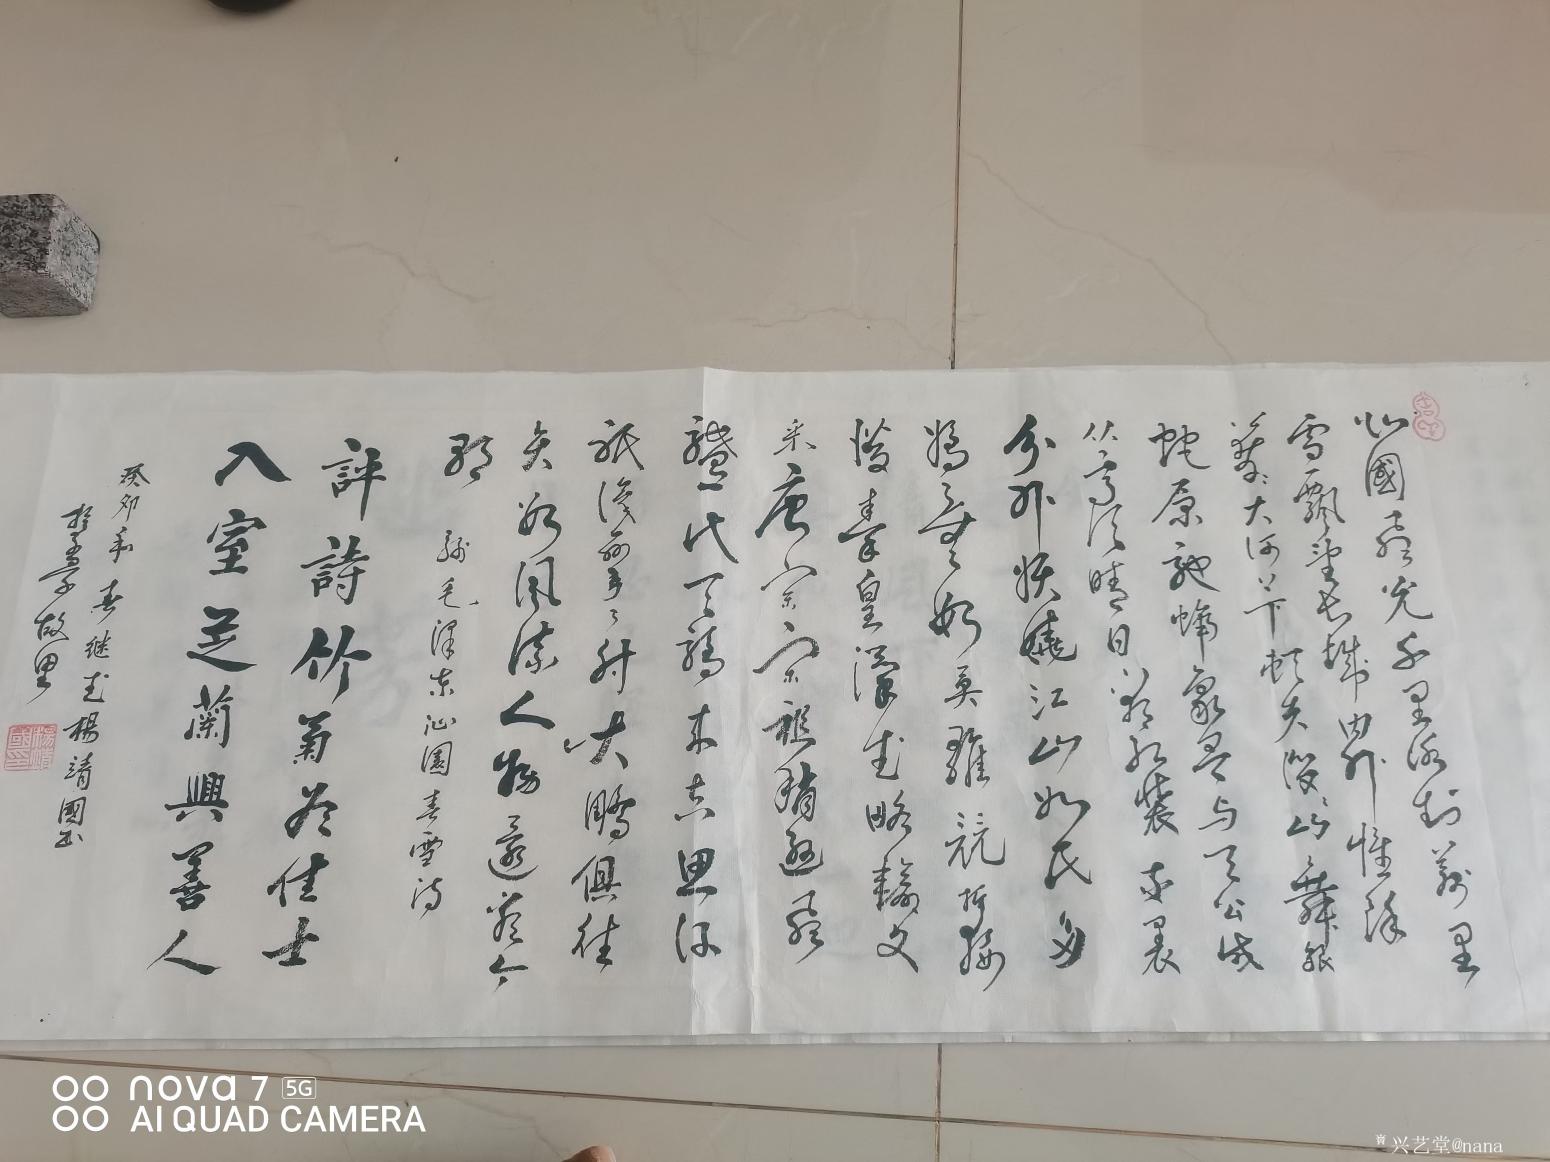 北國風光千里冰封萬里
雪飄望長城內外惟餘
莽〻大河上下頓失滔〻山舞銀
蛇原馳蠟象欲与天公試
比高須晴日看紅裝素裹
分外妖嬈江山如此多
嬌引無數英雄競折腰
惜秦皇漢武略輸文
采唐宗宋祖稍遜風
騷一代天驕成吉思汗
祇識彎弓射大鵰俱往
矣數風流人物還看今
朝 毛澤東沁園春雪詩
評詩竹菊為佳士
入室芝蘭興善人
癸卯年春继武楊靖國書
故里
nova 7 5G
AI QUAD CAMERA
兴艺堂@nana